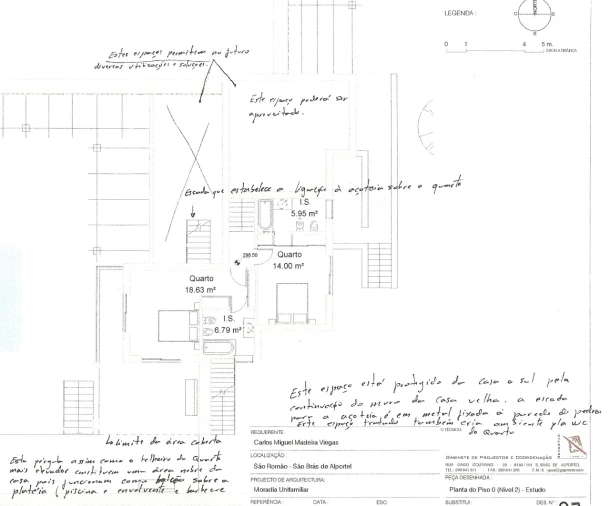 LEGENDA :
NORTE
0 1 4 5 m.
ESCALA GRÁFICA
Estes espaços permitem no futuro
diversas utilizações e soluções.
Este espaço poderá ser
aproveitado.
Escada que estabelece a ligação à açoteia sobre o quarto
I.S.
5.95 m²
Quarto
14.00 m²
Quarto
18.63 m²
I.S.
6.79 m²
Este espaço está protegido da casa a sul pela
continuação do muro da casa velha. a escada
para a açoteia, é em metal fixada à parede de pedra
Este espaço tratado também cria ambiente p/a WC
do Quarto
limite da área coberta
Esta pérgula assim como o telheiro do Quarto
mais elevados constituem uma área nobre da
casa pois funcionam como balcão sobre a
plateia (piscina e envolvente e barbecue
REQUERENTE:
Carlos Miguel Madeira Viegas
LOCALIZAÇÃO
São Romão - São Brás de Alportel
PROJECTO DE ARQUITECTURA:
Moradia Unifamiliar
REFERÊNCIA : DATA : ESC:
O TÉCNICO:
GABINETE DE PROJECTOS E COORDENAÇÃO
PEÇA DESENHADA :
Planta do Piso 0 (Nível 2) - Estudo
SUBSTITUI : DES. Nº :